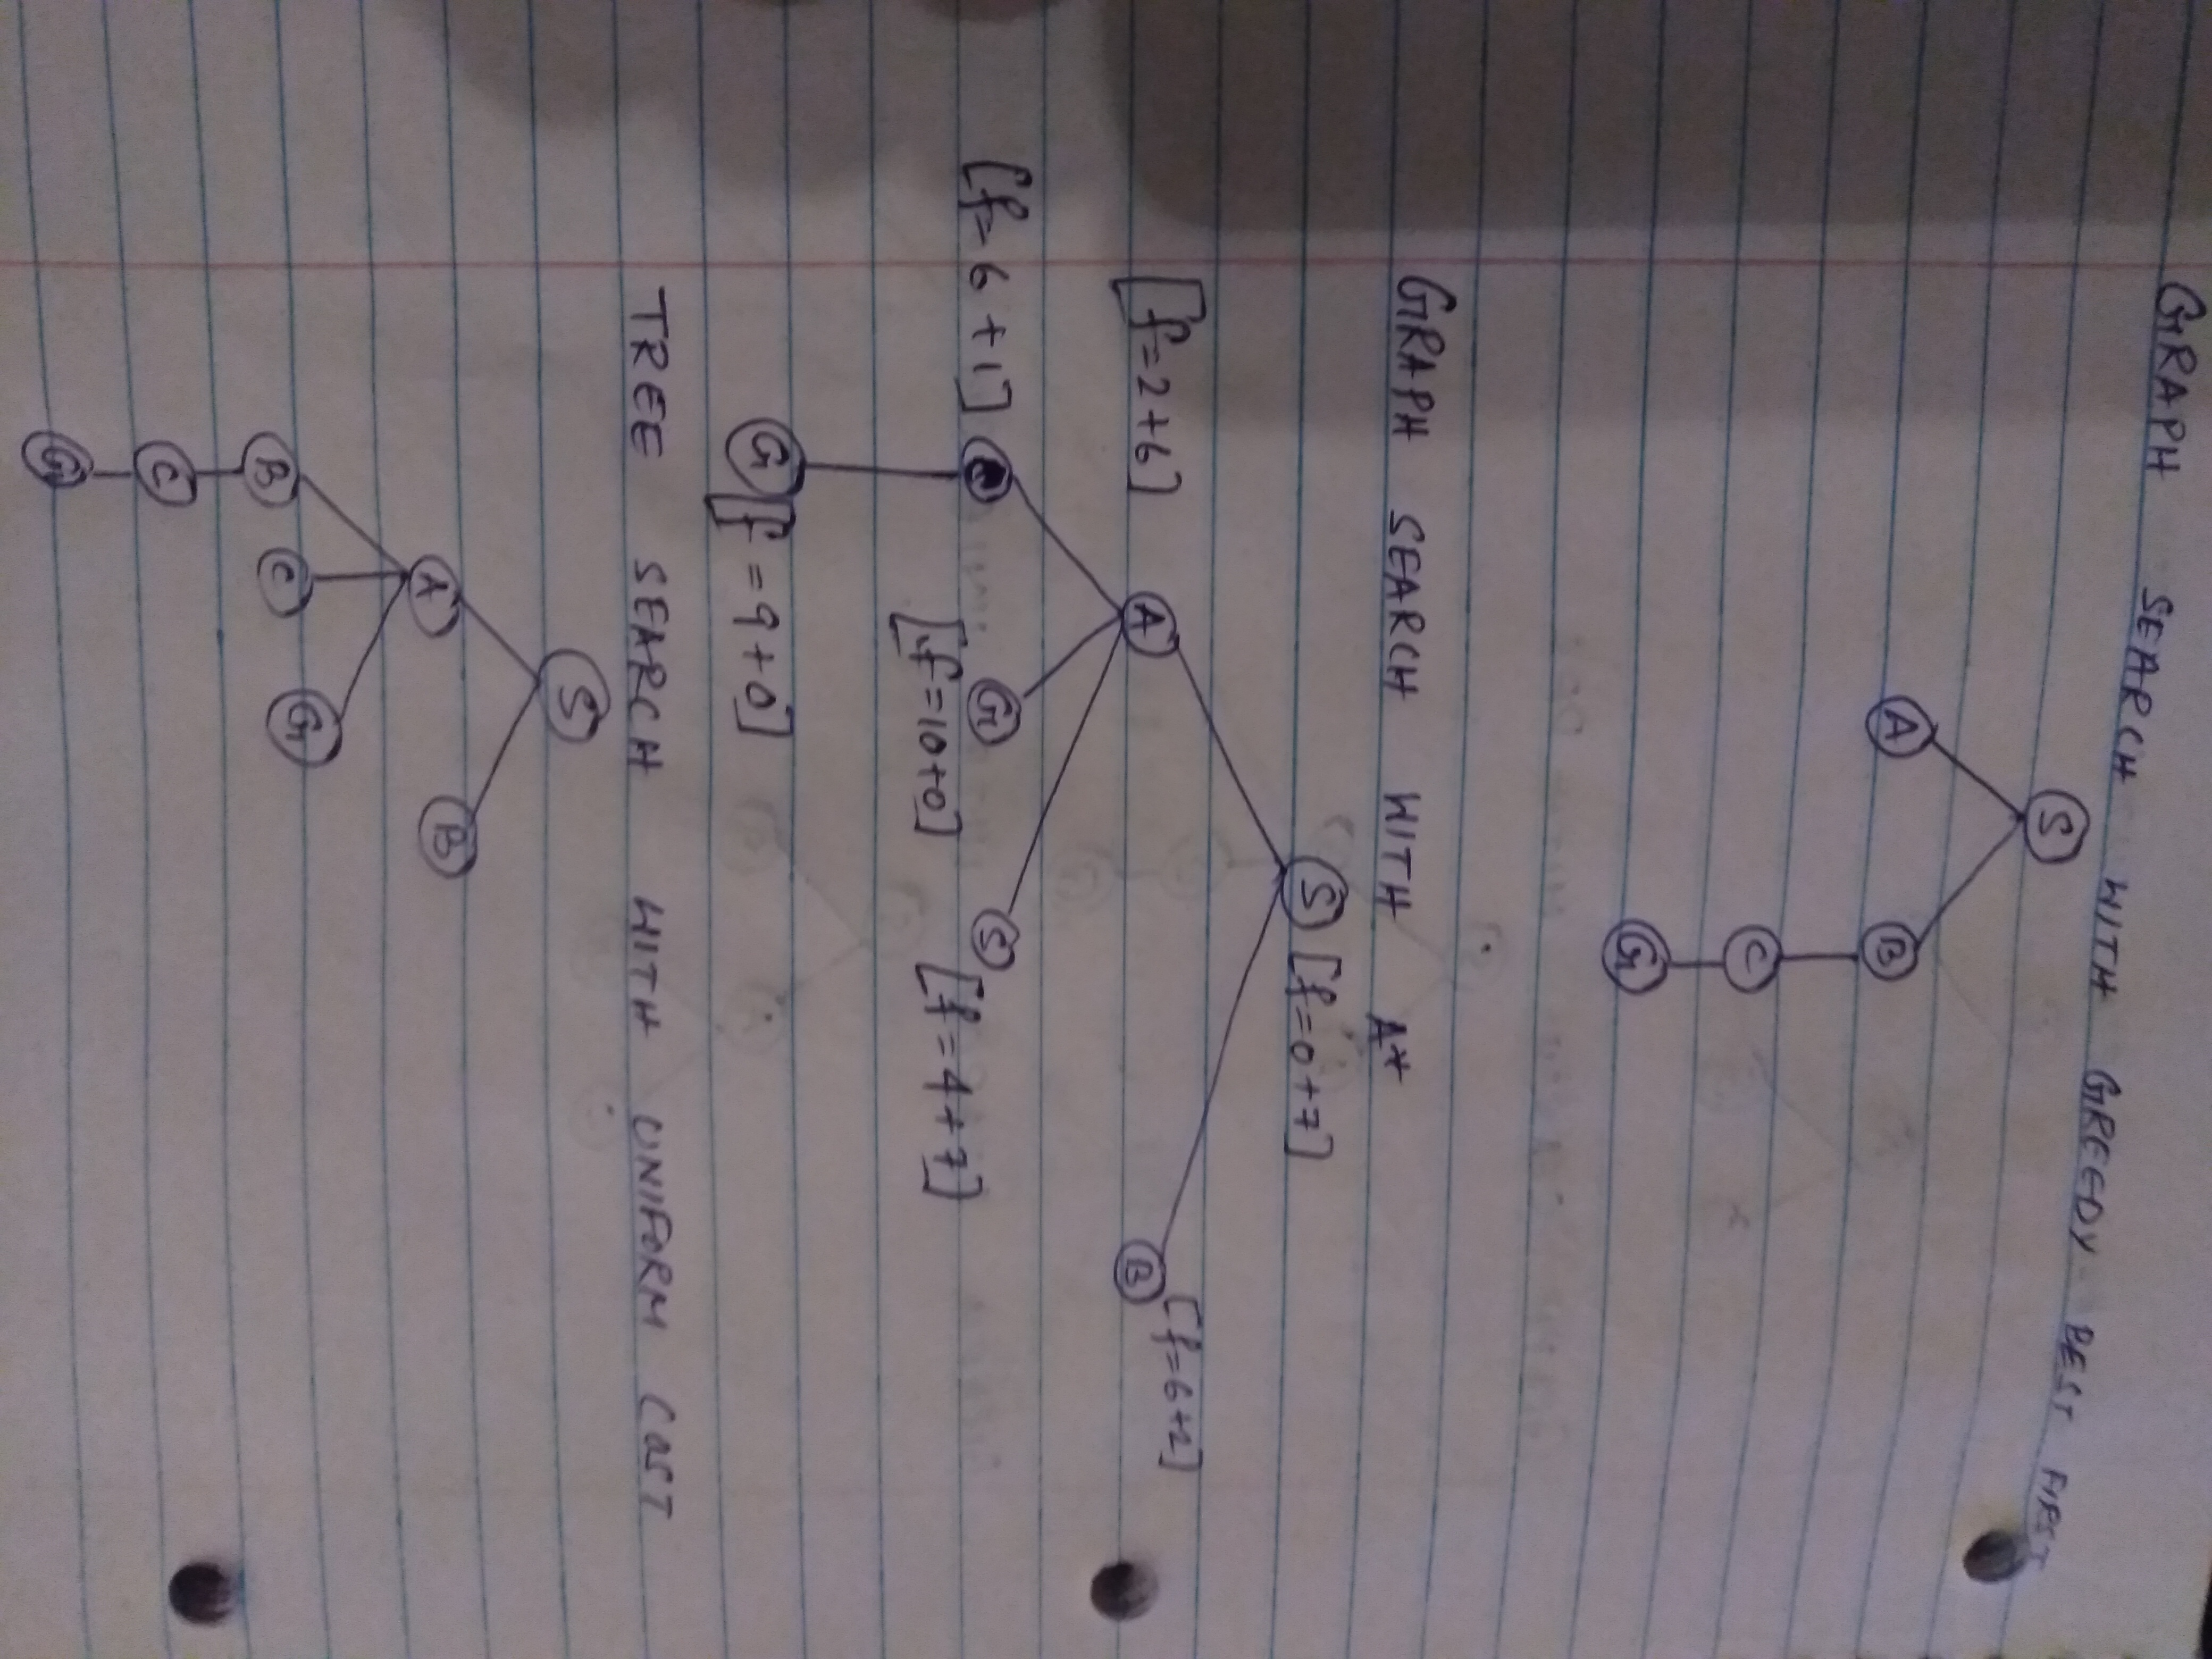 GRAPH SEARCH WITH GREEDY BEST FIRST
S
A B
C
G
GRAPH SEARCH WITH A*
S [f=0+7]
[f=2+6] A B [f=6+2]
[f=6+1] G
[f=10+0] [f=4+7]
G [f=9+0]
TREE SEARCH WITH UNIFORM COST
S
A B
B C G
C
G